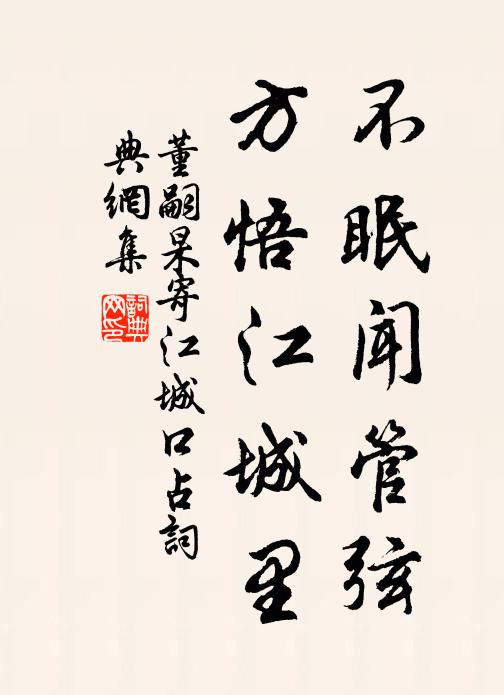 不眠闻管弦
方悟江城里
董嗣杲寄江城口占詞
典網集
詞典网印